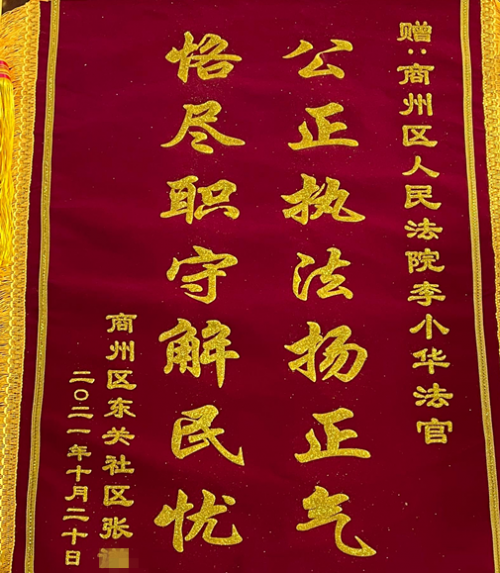 赠：商州区人民法院李小华法官
公正执法扬正气
恪尽职守解民忧
商州区东关社区张
二〇二一年十月二十日